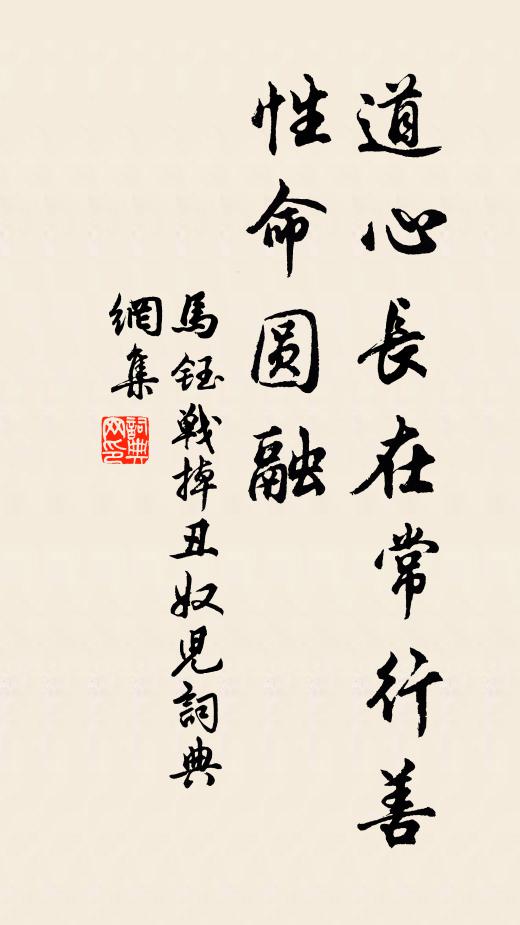 道心長在常行善
性命圆融
馬鈺戰掉丑奴兒詞典
網集
詞典網印